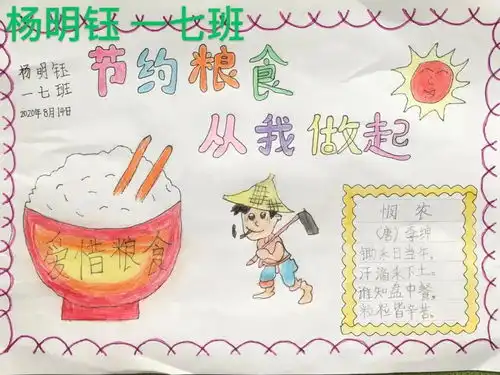 杨明钰 一七班
节约粮食
杨明钰
一七班
2020年8月19日
从我做起
爱惜粮食
悯农
(唐)李绅
锄禾日当午,
汗滴禾下土。
谁知盘中餐,
粒粒皆辛苦。